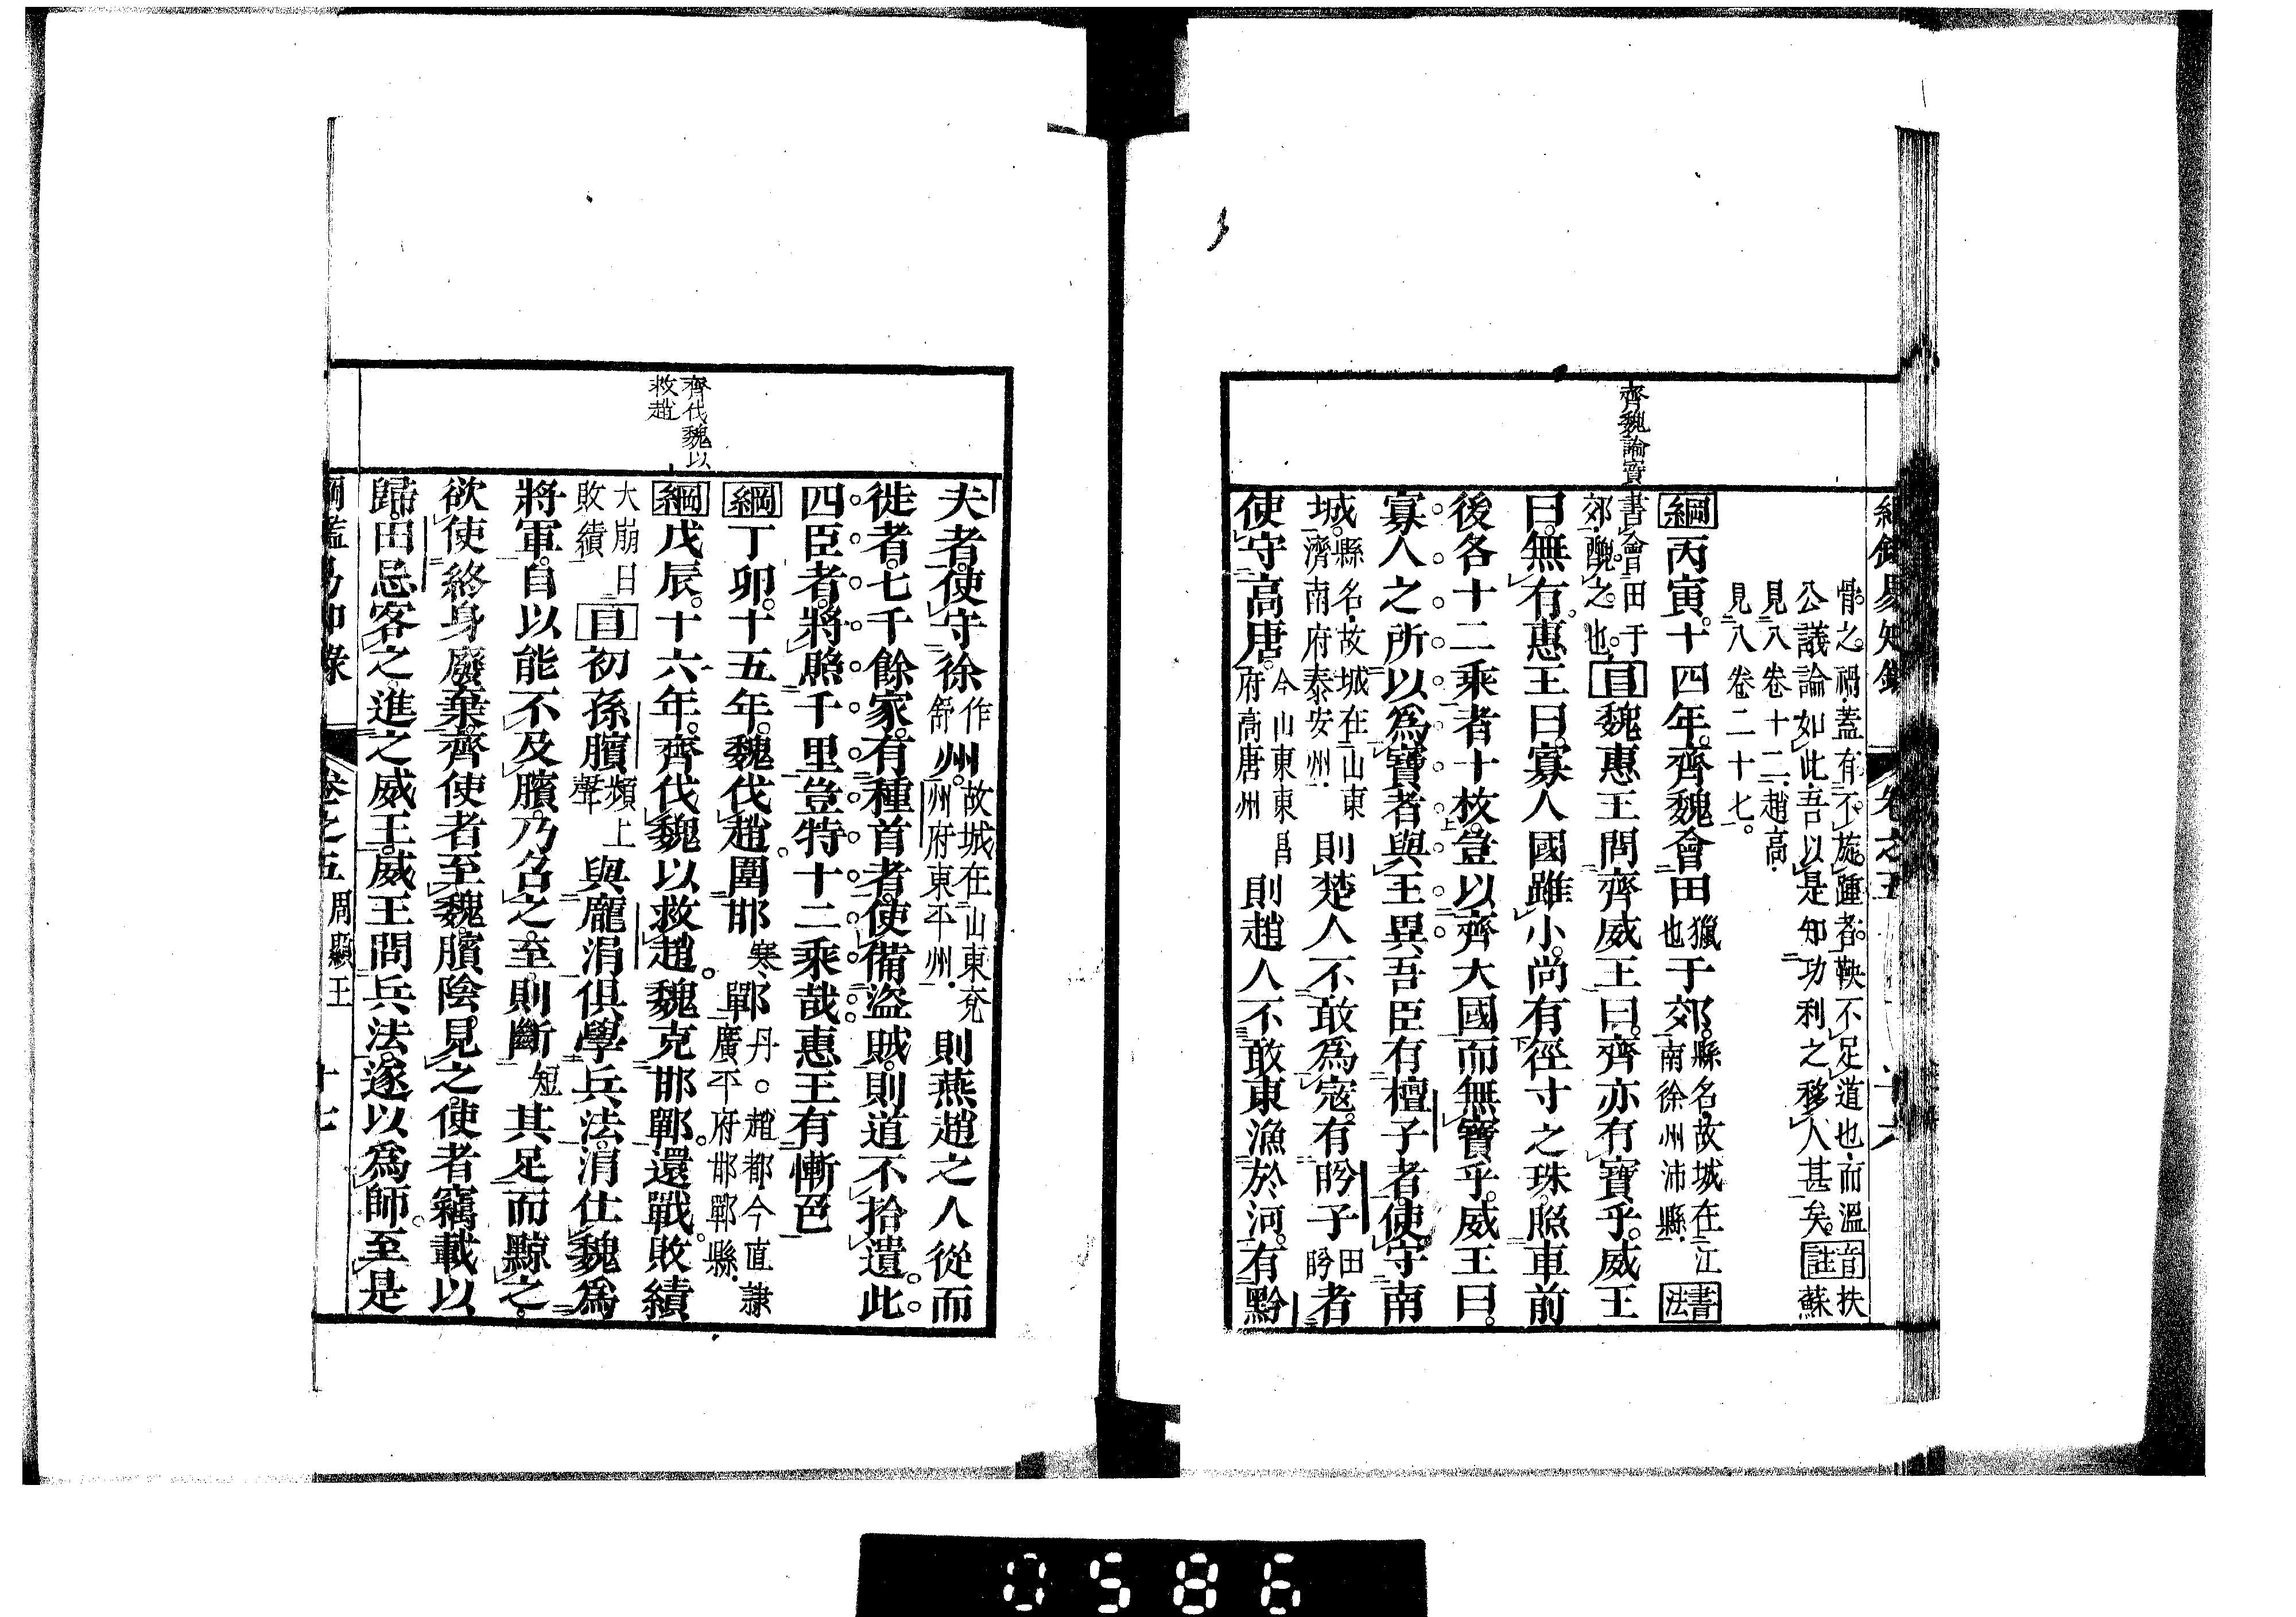 綱鑑易知錄 卷之五 十六
齊魏論寶
骨之禍蓋有不旋踵者鞅不足道也而溫音扶
公議論如此吾以是知功利之移人甚矣註蘇
見八卷十二趙高
見八卷二十七
綱丙寅十四年齊魏會田獵也于郊縣名故城在江南徐州沛縣書法
書會田于郊醜之也目魏惠王問齊威王曰齊亦有寶乎威王
曰無有惠王曰寡人國雖小尚有徑寸之珠照車前
後各十二乘者十枚豈以齊大國而無寶乎威王曰
寡人之所以為寶者與王異吾臣有檀子者使守南
城縣名故城在山東濟南府泰安州則楚人不敢為寇有盼子田盼者
使守高唐今山東東昌府高唐州則趙人不敢東漁於河有黔
齊伐魏以
救趙
夫者使守徐作舒州故城在山東兗州府東平州則燕趙之人從而
徙者七千餘家有種首者使備盜賊則道不拾遺此
四臣者將照千里豈特十二乘哉惠王有慚色
綱丁卯十五年魏伐趙圍邯寒鄲丹○趙都今直隸廣平府邯鄲縣
綱戊辰十六年齊伐魏以救趙魏克邯鄲還戰敗績
大崩曰敗績目初孫臏頻上聲與龐涓俱學兵法涓仕魏為
將軍自以能不及臏乃召之至則斷短其足而黥之
欲使終身廢棄齊使者至魏臏陰見之使者竊載以
歸田忌客之進之威王威王問兵法遂以為師至是
綱鑑易知錄 卷之五 周顯王 十七
0586